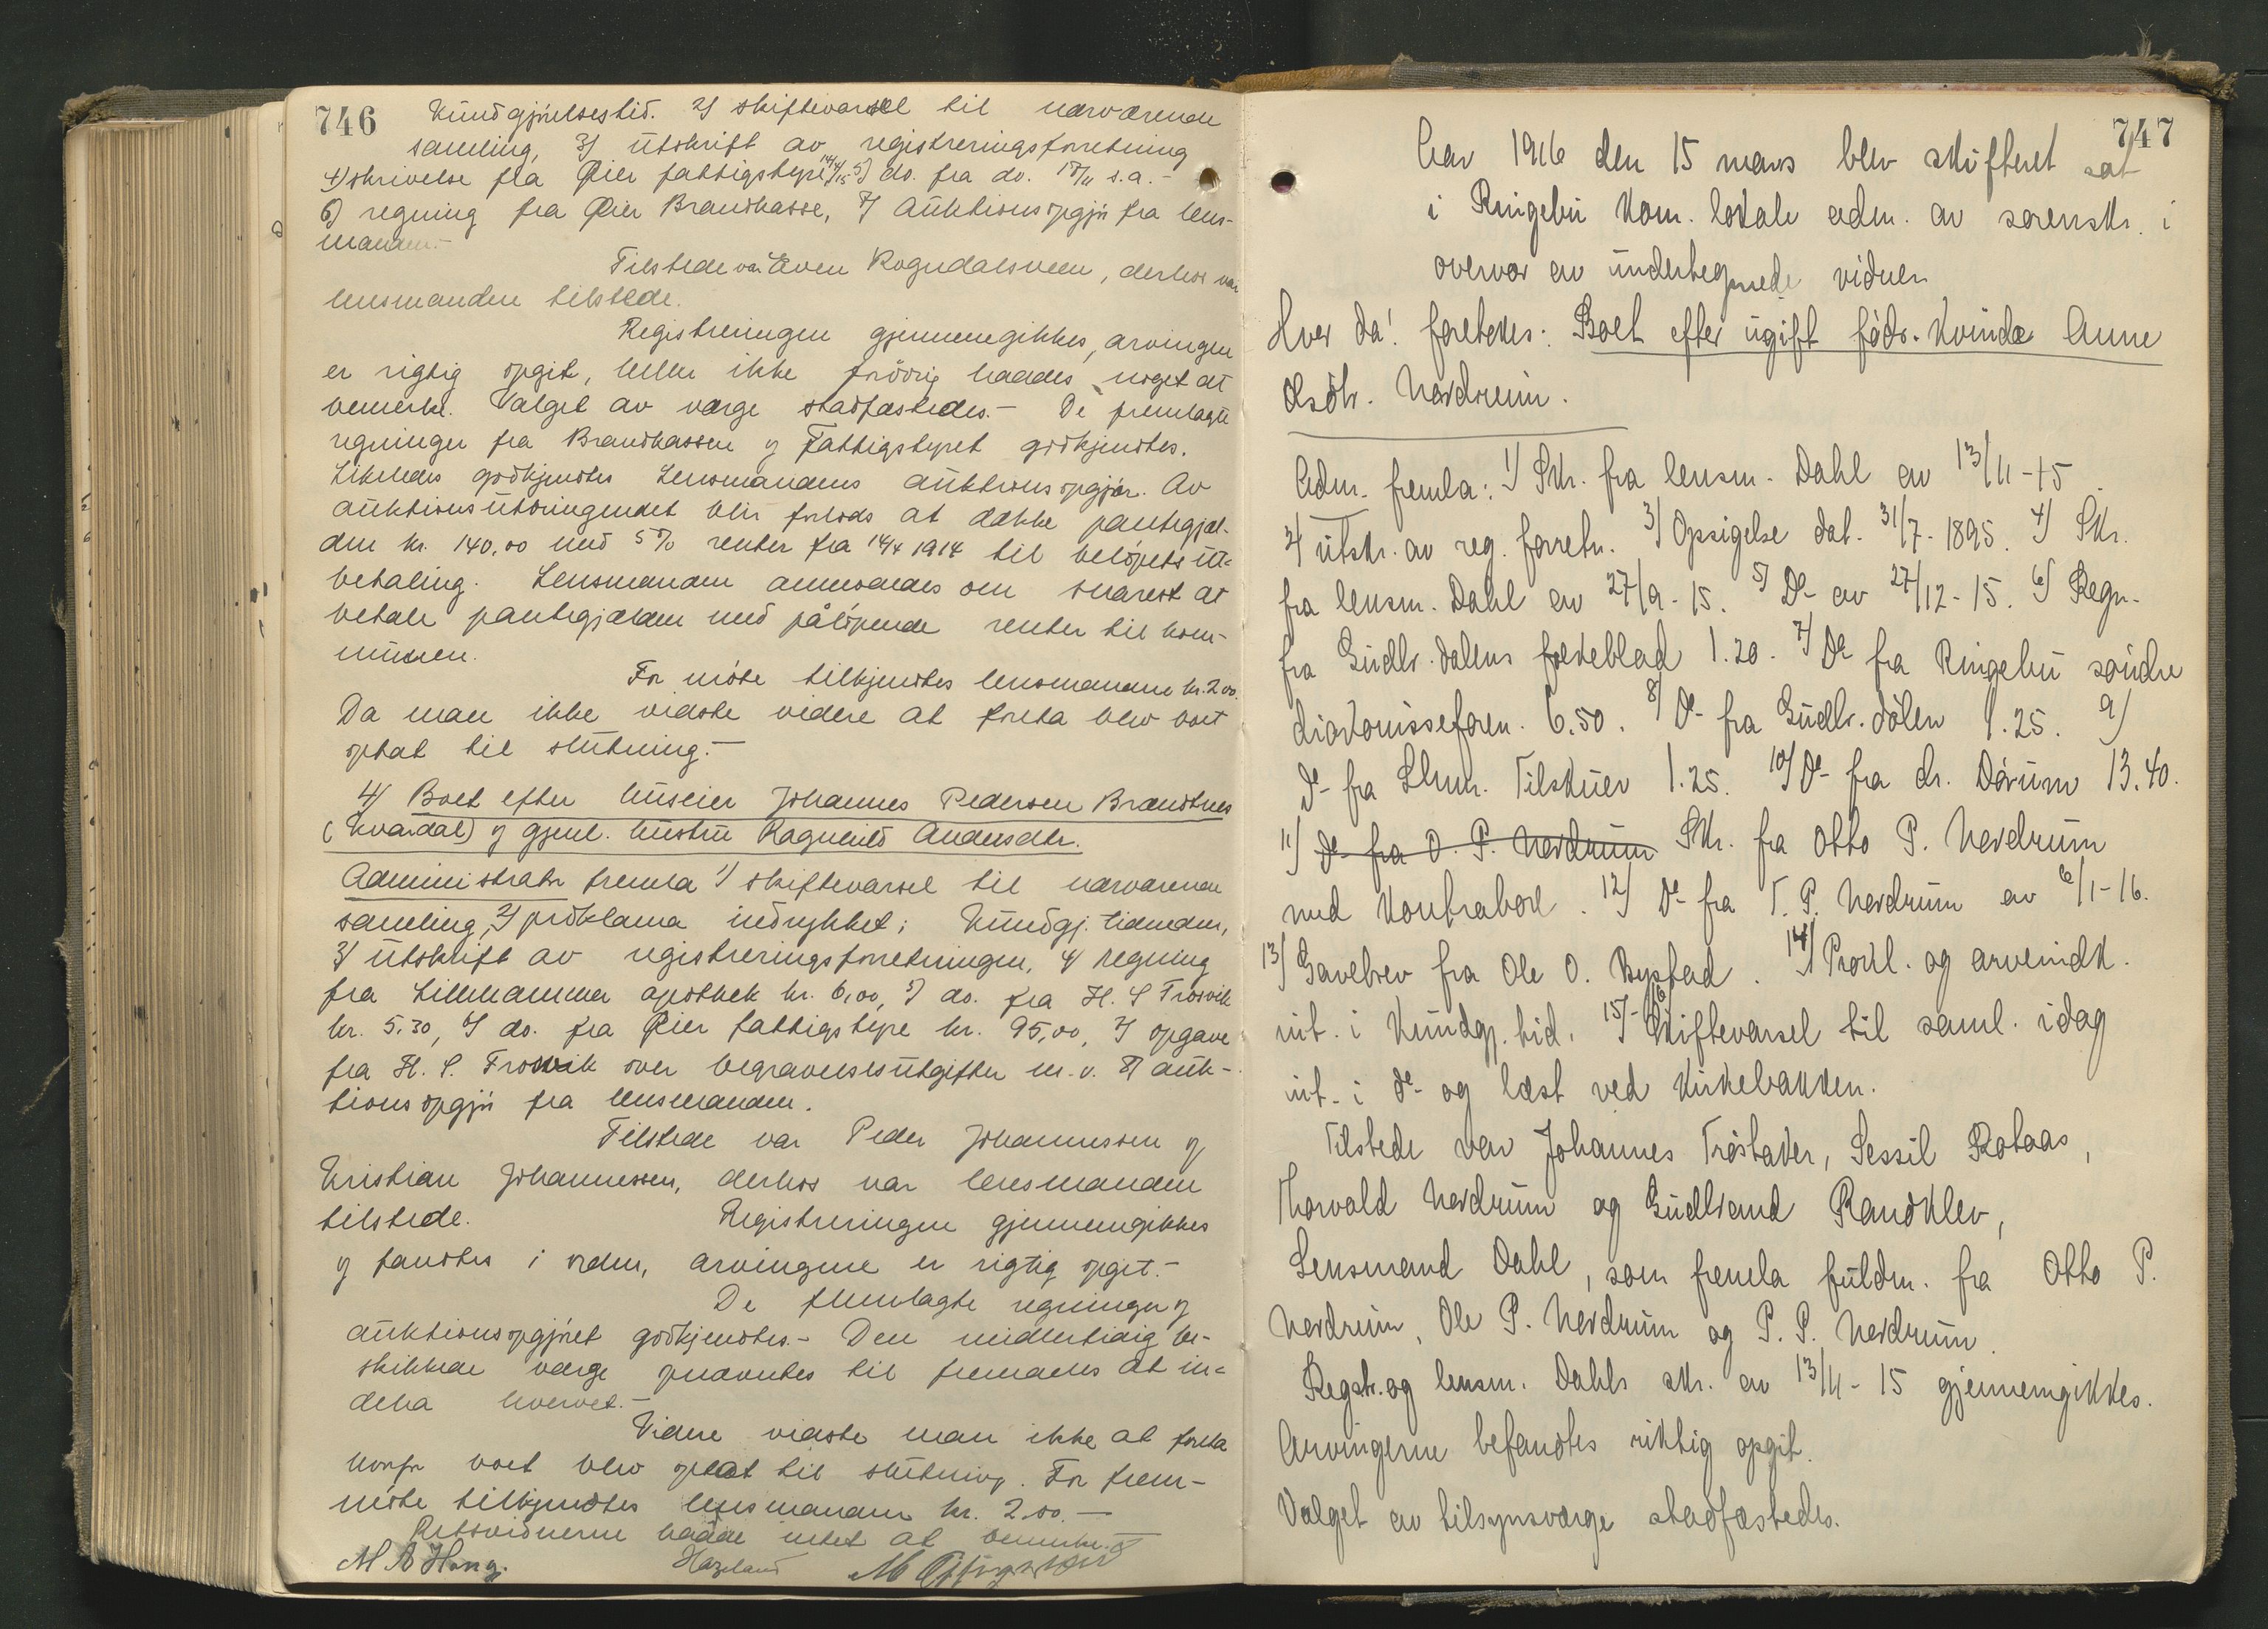 746
Kundgjörelsestid. 2/ skiftevarsel til nærværende
samling, 3/ utskrift av registreringsforretning
4) skrivelse fra Øier fattigstyre 14/4 15 5) do. fra do. s.a. -
6) regning fra Øier Brandkasse, 7/ Auktionsopgjör fra lens-
manden. -
Tilstede var Even Rogndalsveen, derhos var
lensmanden tilstede.
Registreringen gjennemgikkes, arvingen
er rigtig opgit, heller ikke forövrig haddes noget at
bemerke. Valget av værge stadfæstedes. - De fremlagte
regninger fra Brandkassen og Fattigstyret godkjendtes.
Likeledes godkjendtes Lensmandens auktionsopgjör. Av
auktionsutbringendet blir forlods at dække pantegjæl-
den kr. 140,00 med 5% renter fra 14/4 1914 til belöpets ut-
betaling. Lensmanden anmodedes om snarest at
betale pantegjælden med pålöpende renter til kom-
munen.
For möte tilkjendtes lensmanden kr. 2.00.
Da man ikke vidste videre at foreta blev boet
optat til slutning. -
4/ Boet efter huseier Johannes Pedersen Brandtnes
(Kvardal) og gjenl. hustru Ragnhild Andersdtr.
Administrator fremla 1/ skiftevarsel til nærværende
samling, 2/ proklama indrykket i Kundgj. tidenden,
3/ utskrift av registreringsforretningen, 4/ regning
fra Lillehammer apothek kr. 6,00, 5/ do. fra H. S Frosvik
kr. 5.30, 6/ do. fra Øier fattigstyre kr. 95,00, 7/ opgave
fra H. S. Frosvik over begravelsesutgifter m.v. 8/ auk-
tionsopgjör fra lensmanden.
Tilstede var Peder Johannessen og
Kristian Johannessen, derhos var lensmanden
tilstede. Registreringen gjennemgikkes
og fandtes i orden, arvingene er rigtig opgit. -
De fremlagte regninger og
auktionsopgjöret godkjendtes. - Den midlertidig be-
skikkede værge opnævntes til fremdeles at in-
deha hvervet. -
Videre vidste man ikke at foreta
hvorfor boet blev optat til slutning. For frem-
möte tilkjendtes lensmanden kr. 2.00. -
Retsvidnerne hadde intet at bemerke.
M A Haug. Hazeland
747
Aar 1916 den 15 mars blev skifteret sat
i Ringebu kom. lokale adm. av sorenskr. i
overvær av undertegnede vidner
Hver da! foretokes: Boet efter ugift föder. kvinde Anne
Olsdtr. Nordrum.
Adm. fremla: 1/ Skr. fra lensm. Dahl av 13/11-15.
2/ utskr. av reg. forretn. 3/ Opsigelse dat. 31/7-1895. 4/ Skr.
fra lensm. Dahl av 27/9-15. 5/ Do av 27/12-15. 6/ Regn.
fra Gudbr.dalens folkeblad 1.20. 7/ Do fra Ringebu söndre
diakonisseforen. 6.50. 8/ Do fra Gudbr.dölen 1.25. 9/
Do fra Lhmr. Tilskuer 1.25. 10/ Do fra dr. Dörum 13.40.
11/ Do fra O. P. Nordrum Skr. fra Otto P. Nordrum
med kontrabok. 12/ Do fra T. P. Nordrum av 6/1-16.
13/ Gavebrev fra Ole O. Bystad. 14/ Prokl. og arveindk.
int. i Kundgj. tid. 15/-16/ Skiftevarsel til saml. idag
int. i do og læst ved kirkebakken.
Tilstede var Johannes Tröstaker, Sessil Rotaas,
Thorvald Nordrum og Gudbrand Randklev,
Lensmand Dahl, som fremla fuldm. fra Otto P.
Nordrum, Ole P. Nordrum og P. P. Nordrum.
Regstr. og lensm. Dahls skr. av 13/11-15 gjennemgikkes.
Arvingerne befandtes riktig opgit.
Valget av tilsynsværge stadfæstedes.